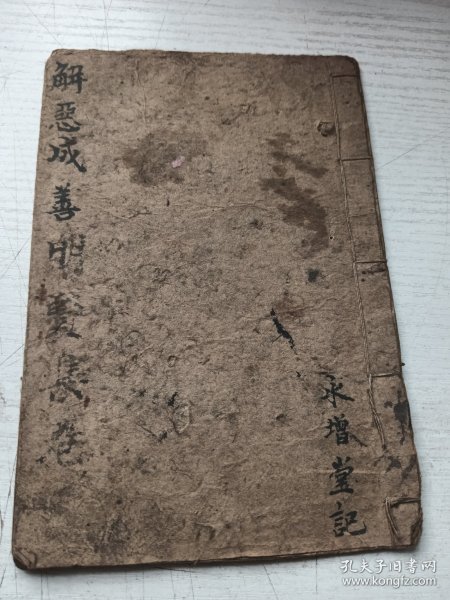 解惡成善明聖寳卷
永增堂記
孔夫子旧书网
www.kongfz.com